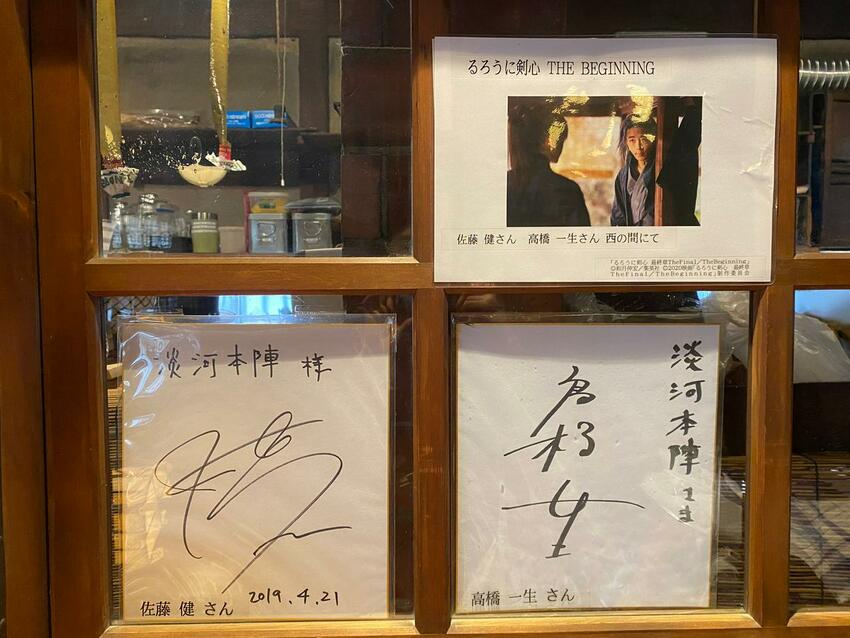 るろうに剣心 THE BEGINNING
佐藤 健さん 高橋 一生さん 西の間にて
「るろうに剣心 最終章TheFinal/TheBeginning」
©和月伸宏/集英社 ©2020映画「るろうに剣心 最終章
TheFinal/TheBeginning」製作委員会
淡河本陣 様
佐藤 健 さん
2019.4.21
淡河本陣さま
高橋 一生 さん